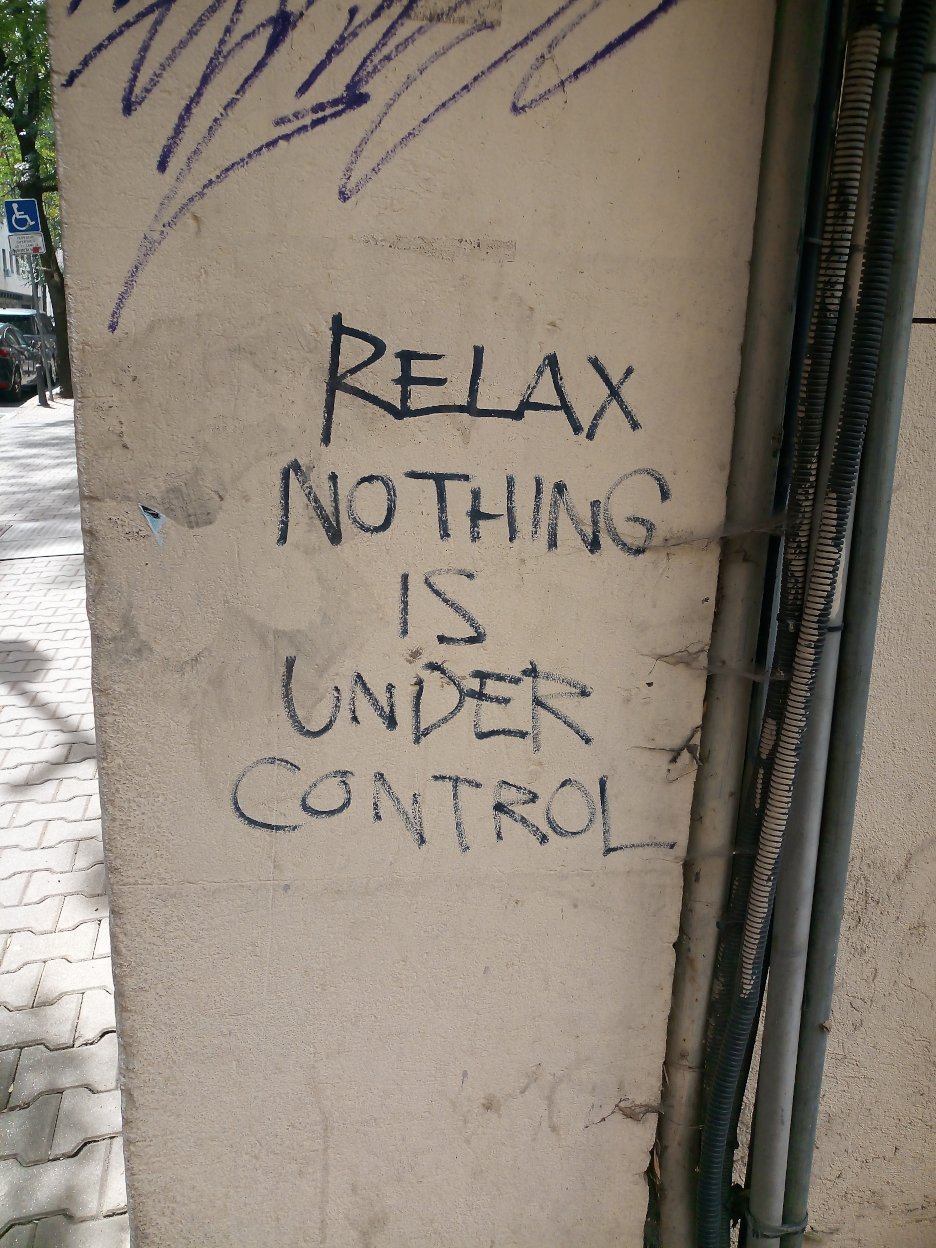 RELAX
NOTHING
IS
UNDER
CONTROL